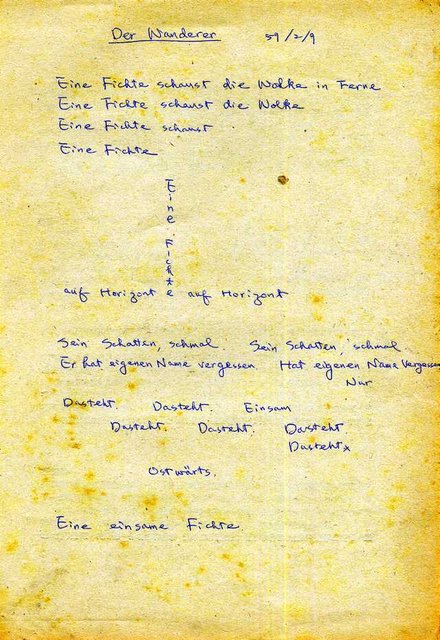 Der Wanderer 59/2/9
Eine Fichte schaust die Wolke in Ferne
Eine Fichte schaust die Wolke
Eine Fichte schaust
Eine Fichte
Eine Fichte
auf Horizont e auf Horizont
Sein Schatten, schmal Sein Schatten, schmal
Er hat eigenen Name vergessen. Hat eigenen Name vergessen
Nur
Dasteht. Dasteht. Einsam
Dasteht. Dasteht. Dasteht
Dasteht
Ostwärts.
Eine einsame Fichte